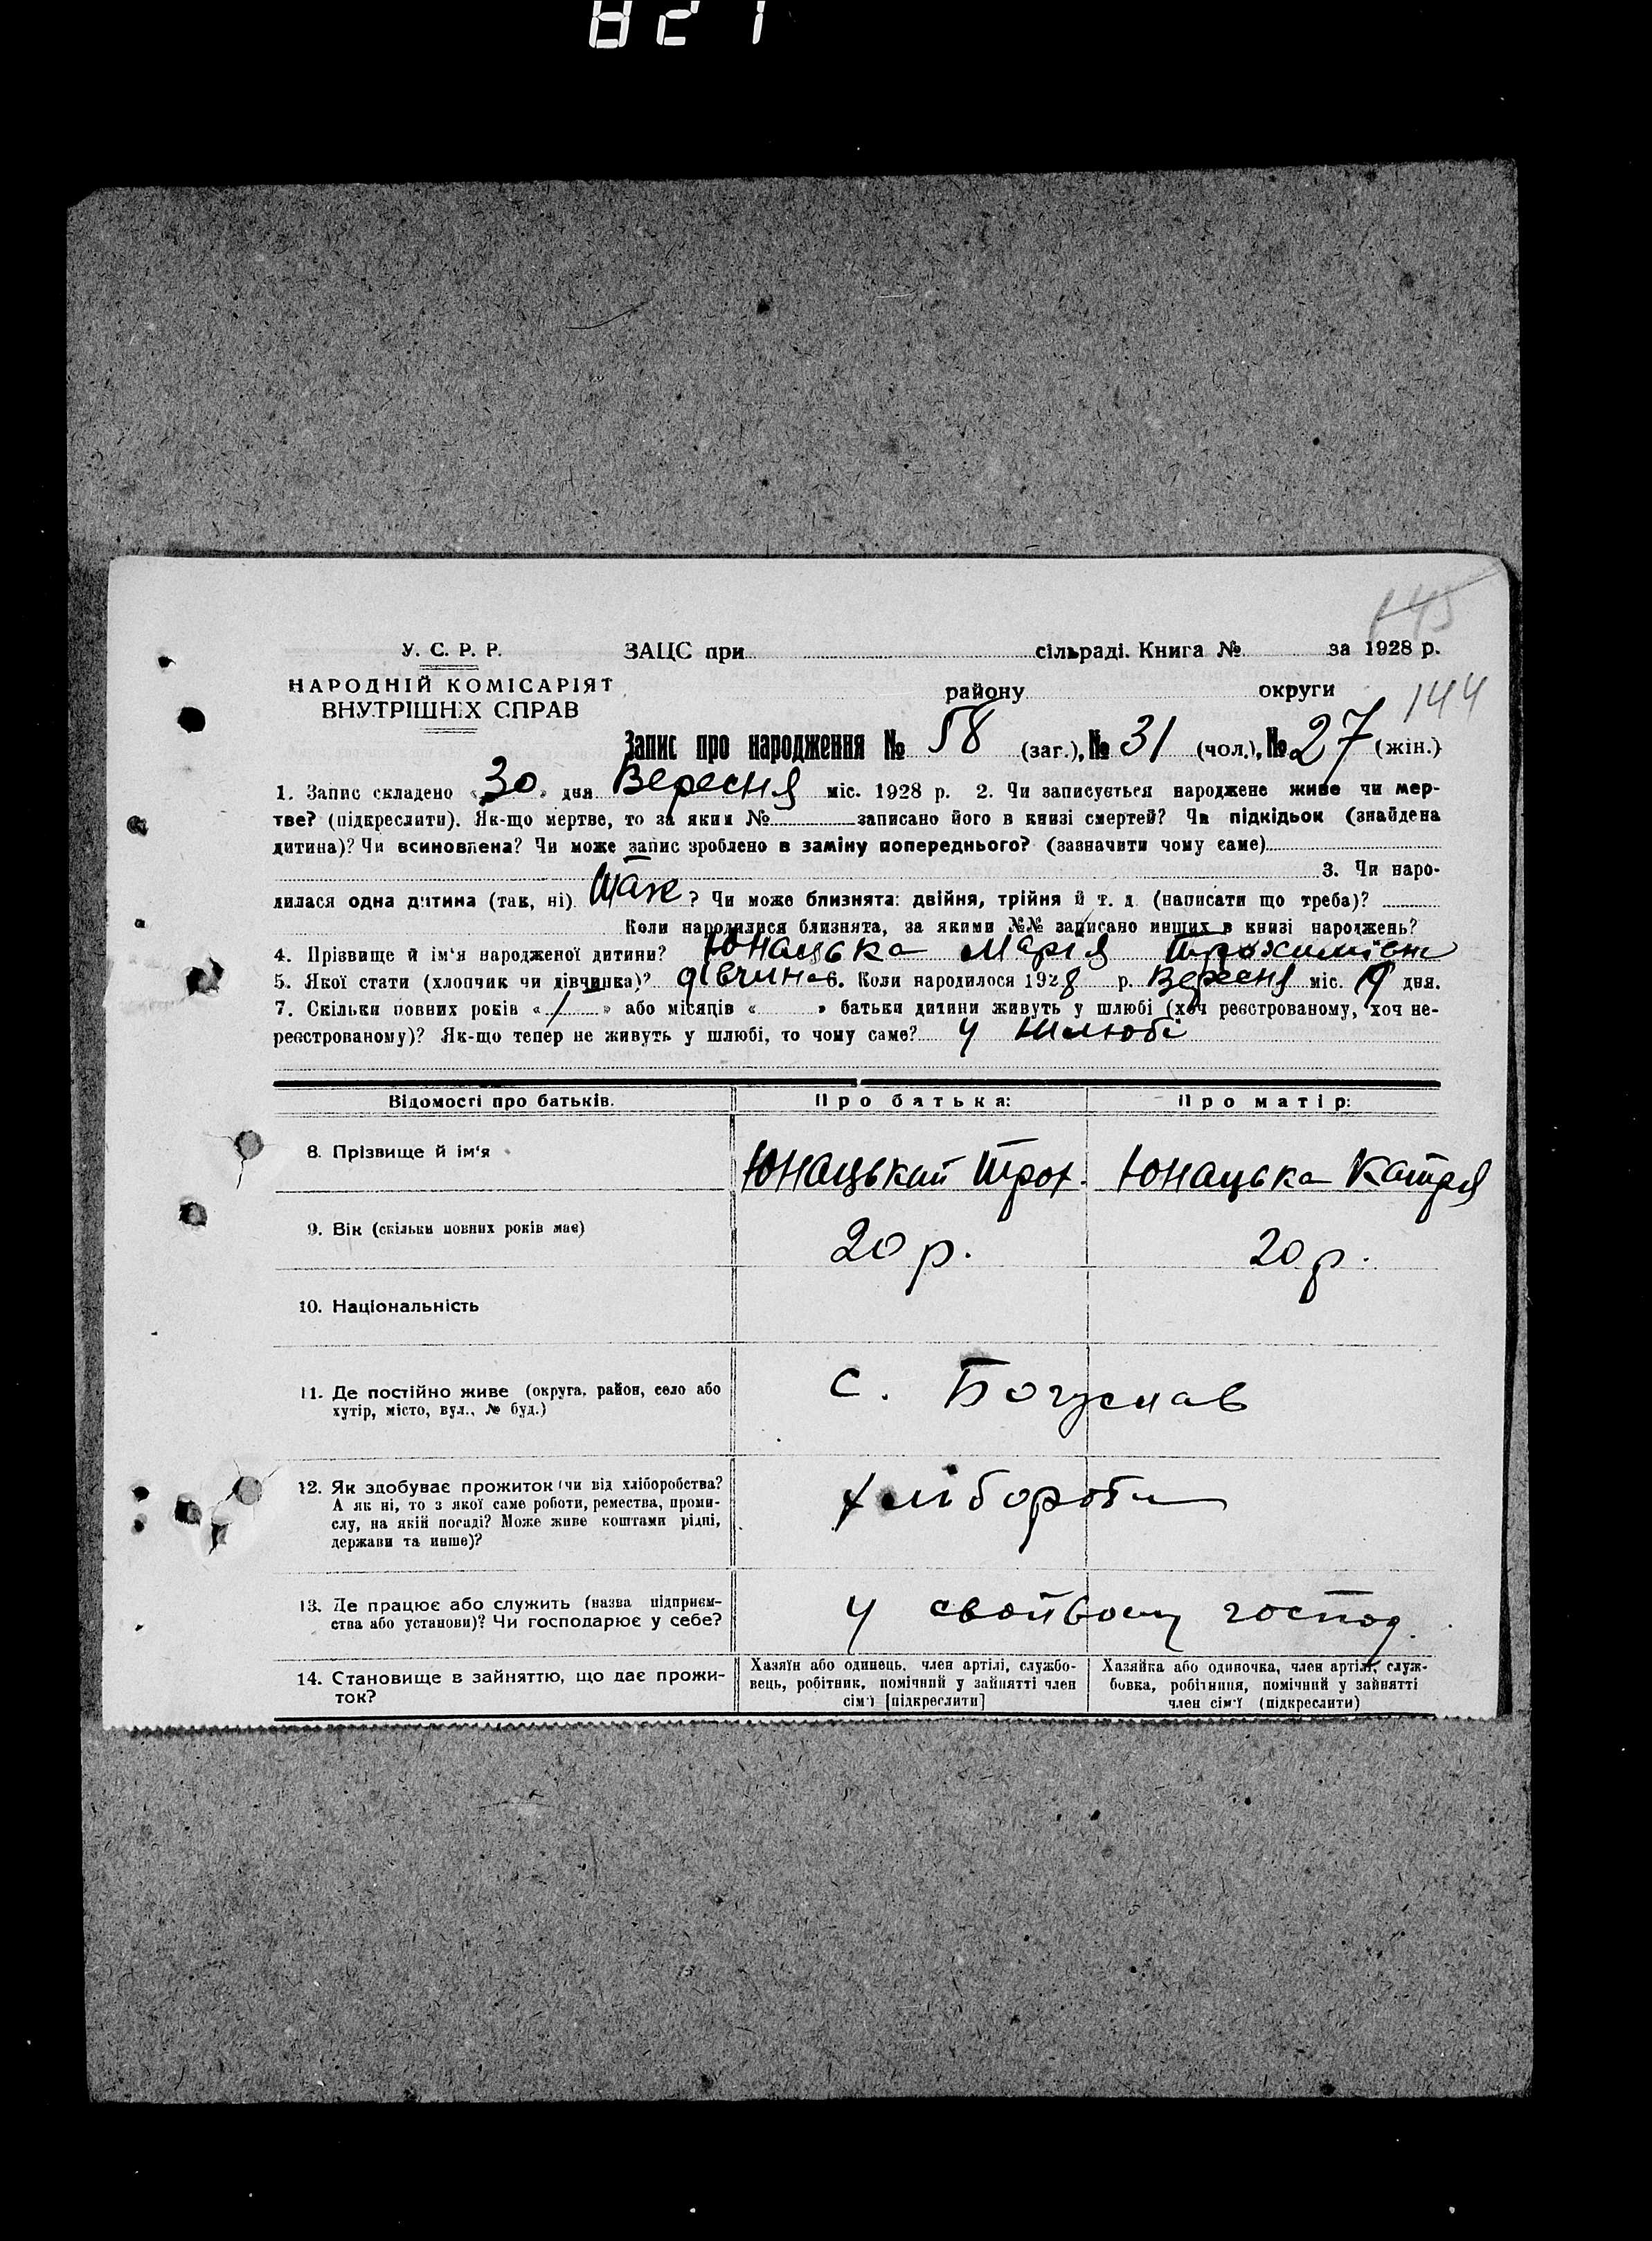 821
145
У. С. Р. Р. ЗАЦС при сільраді. Книга № за 1928 р.
НАРОДНІЙ КОМІСАРІЯТ району округи 144
ВНУТРІШНІХ СПРАВ
Запис про народження № 58 (заг.), № 31 (чол.), № 27 (жін.)
1. Запис складено «30» дня Вересня міс. 1928 р. 2. Чи записується народжене живе чи мер-
тве? (підкреслити). Як-що мертве, то за яким № записано його в книзі смертей? Чи підкідьок (знайдена
дитина)? Чи всиновлена? Чи може запис зроблено в заміну попереднього? (зазначити чому саме)
3. Чи наро-
дилася одна дитина (так, ні) Так? Чи може близнята: двійня, трійня й т. д. (написати що треба)?
Коли народилися близнята, за якими №№ записано инших в книзі народжень?
4. Прізвище й ім'я народженої дитини? Юнацька Марія
5. Якої стати (хлопчик чи дівчинка)? дівчина 6. Коли народилося 1928 р. Вересня міс. 19 дня.
7. Скільки повних років «1» або місяців « » батьки дитини живуть у шлюбі (хоч реєстрованому, хоч не-
реєстрованому)? Як-що тепер не живуть у шлюбі, то чому саме? У шлюбі
Відомості про батьків. Про батька: Про матір:
8. Прізвище й ім'я Юнацький Трох. Юнацька Катря
9. Вік (скільки повних років має) 20 р. 20 р.
10. Національність
11. Де постійно живе (округа, район, село або
хутір, місто, вул., № буд.) с. Богуслав
12. Як здобуває прожиток (чи від хліборобства?
А як ні, то з якої саме роботи, ремества, проми-
слу, на якій посаді? Може живе коштами рідні,
держави та инше)? хлібороби
13. Де працює або служить (назва підприєм-
ства або установи)? Чи господарює у себе? У свойвому господ.
14. Становище в зайняттю, що дає прожи-
ток?
Хазяїн або одинець, член артілі, службо-
вець, робітник, помічний у зайнятті член
сім'ї [підкреслити]
Хазяйка або одиночка, член артілі, служ-
бовка, робітниця, помічний у зайнятті
член сім'ї (підкреслити)